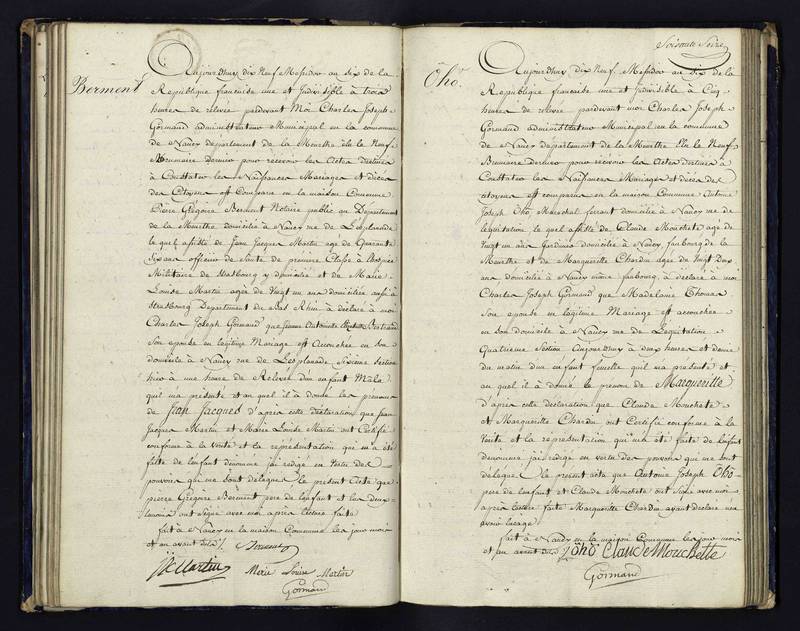 Berment
Aujourdhuy dix Neuf Messidor an Six de la
Republique francoise une et Indivisible à trois
heures de relevée pardevant Moi Charles Joseph
Gormand administrateur Municipal en la commune
de Nancy departement de la Meurthe Elu le Neuf
Brumaire dernier pour recevoir les Actes destinés
à Constater les Naissances Mariages et décès
des Citoyens est Comparu en la maison Commune
Pierre Grégoire Berment Notaire public au Département
de la Meurthe domicilié à Nancy rue de L'esplanade
le quel assisté de Jean Jacques Martin agé de Quarante
Six ans officier de Santé de premiere Classe à lhospice
Militaire de Strasbourg y domicilié et de Marie
Louise Martin agée de Vingt un ans domiciliée aussi à
Strasbourg Departement du Bas Rhin à déclaré à moi
Charles Joseph Gormand que Jeanne Antoinette Bertrand
Son epouse en legitime Mariage est Accouchée en son
domicile à Nancy rue de L'esplanade Sixieme Section
hier à une heure de Relevée dun enfant Mâle
quil ma presenté et au quel il à donné les prenoms
de Jean Jacques d'après cette déclaration que Jean
Jacques Martin et Marie Louise Martin ont Certifié
conforme à la Verité et la représentation qui m'a été
faite de lenfant denommé jai redigé en Vertu des
pouvoirs qui me sont délegués le present Acte que
pierre Grégoire Berment pere de lenfant et les deux
temoins ont Signé avec moi après lecture faite
fait à Nancy en la maison Commune les jour mois
et an avant dits Berment
JJ Martin Marie Louise Martin
Gormand
Soixante Seize
Ôhô
Aujourdhuy dix Neuf Messidor an Six de la
Republique francoise une et Indivisible à Cinq
heures de relevée pardevant moi Charles Joseph
Gormand administrateur Municipal en la commune
de Nancy departement de la Meurthe Elu le Neuf
Brumaire dernier pour recevoir les Actes destinés à
Constater les Naissances Mariages et décès des
citoyens est comparu en la maison Commune Antoine
Joseph Ôhô Marechal ferrant domicilié à Nancy rue de
lequitation le quel assisté de Claude Mouchete agé de
Vingt un ans Jardinier domicilié à Nancy faubourg de la
Meurthe et de Marguerite Chardin agée de Vingt Deux
ans domiciliée à Nancy même faubourg à déclaré à moi
Charles Joseph Gormand que Madelaine Thomas
Son epouse en legitime Mariage est accouchée
en son domicile à Nancy rue de L'equitation
Quatrieme Section Aujourdhuy à deux heures et demie
du matin dun enfant femelle quil ma présenté et
au quel il à donné le prenom de Margueritte
d'après cette déclaration que Claude Mouchete
et Marguerite Chardin ont Certifié conforme à la
Verité et la representation qui ma été faite de lenfant
denommé jai redigé en vertu des pouvoirs qui me sont
délegués le present acte que Antoine Joseph Ôhô
pere de lenfant et Claude Mouchete ont Signé avec moi
après lecture faite Marguerite Chardin ayant déclaré ne
avoir lusage
fait à Nancy en la maison Commune les jour mois
et an avant dits Ôhô Claude Mouchette
Gormand